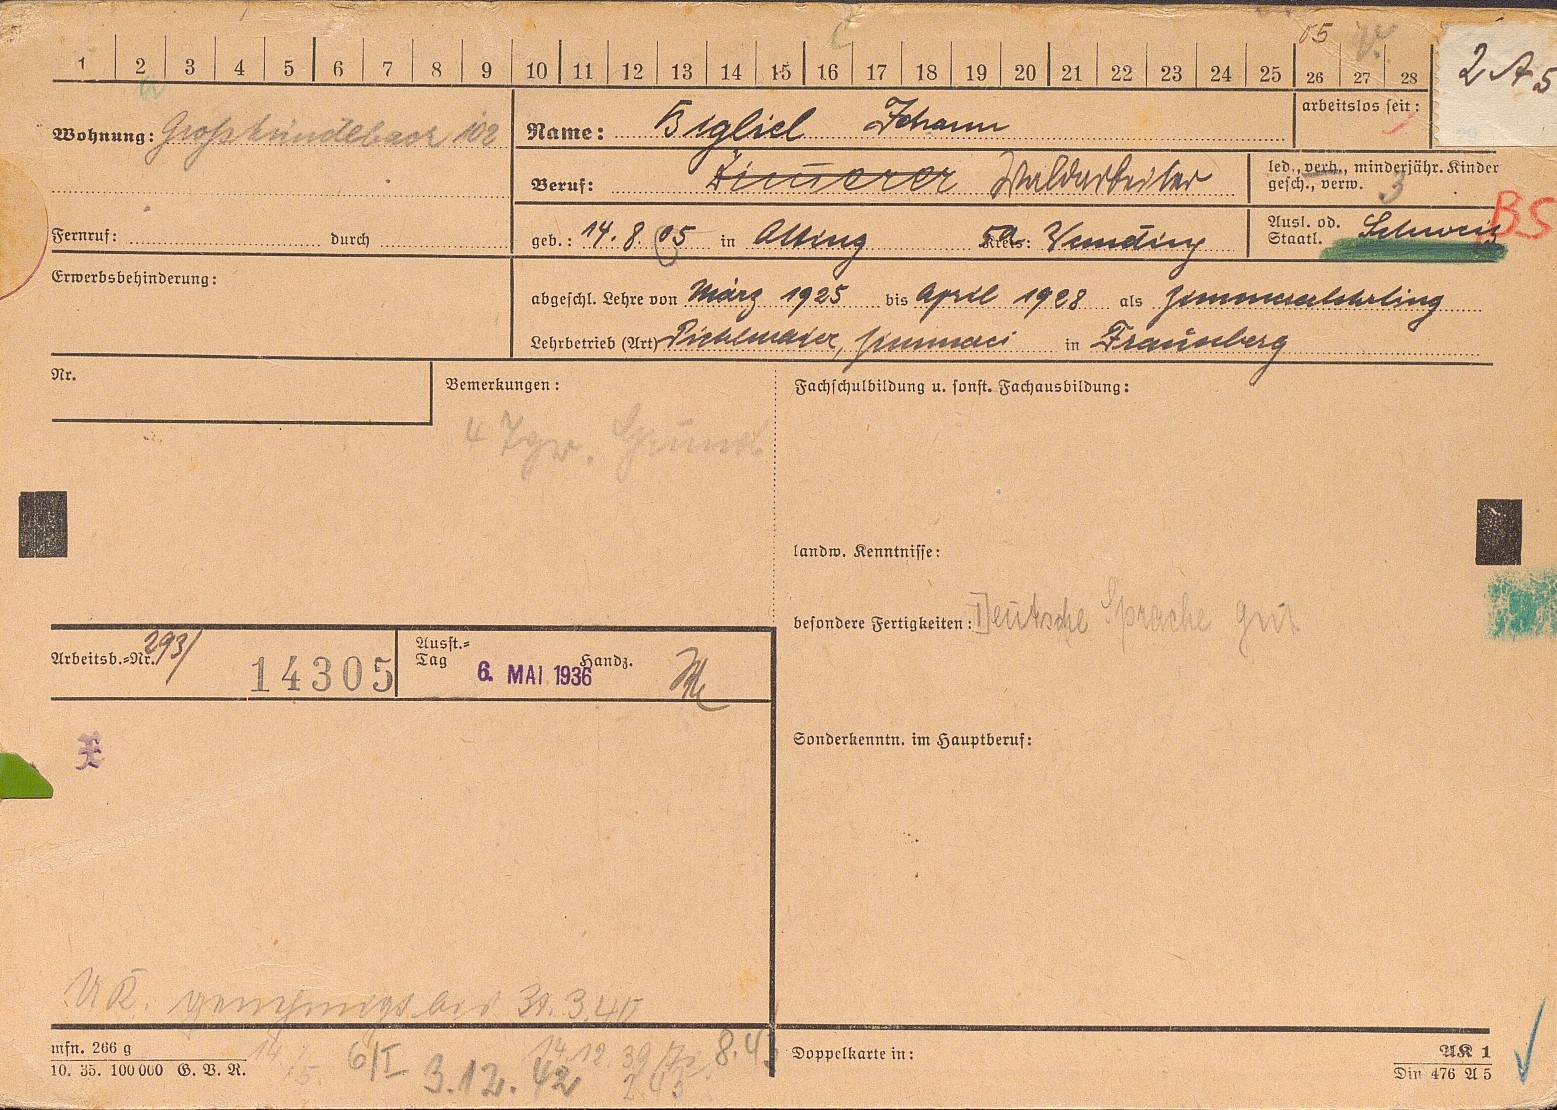 05
1 2 3 4 5 6 7 8 9 10 11 12 13 14 15 16 17 18 19 20 21 22 23 24 25 26 27 28
2 A 5
Wohnung: 102
Name: Johann
arbeitslos seit:
Beruf: Zimerer Waldarbeiter
led., verh., minderjähr. Kinder
gesch., verw. 3
Fernruf: durch
geb.: 14.8.05 in Kreis:
Ausl. od.
Staatl. Schweiz
BS
Erwerbsbehinderung:
abgeschl. Lehre von März 1925 bis April 1928 als
Lehrbetrieb (Art) in Fraunberg
Nr.
Bemerkungen:
Fachschulbildung u. sonst. Fachausbildung:
landw. Kenntnisse:
besondere Fertigkeiten: Deutsche Sprache gut
Arbeitsb.=Nr. 293/ 14305
Ausst.=
Tag 6. MAI 1936 Handz.
Sonderkenntn. im Hauptberuf:
UK. bis 31.3.40
mfn. 266 g
10. 35. 100 000 G. V. R.
14/5. 6/I 3.12.42 14.12.39 2.43 8.43
Doppelkarte in:
AK 1
Din 476 A 5